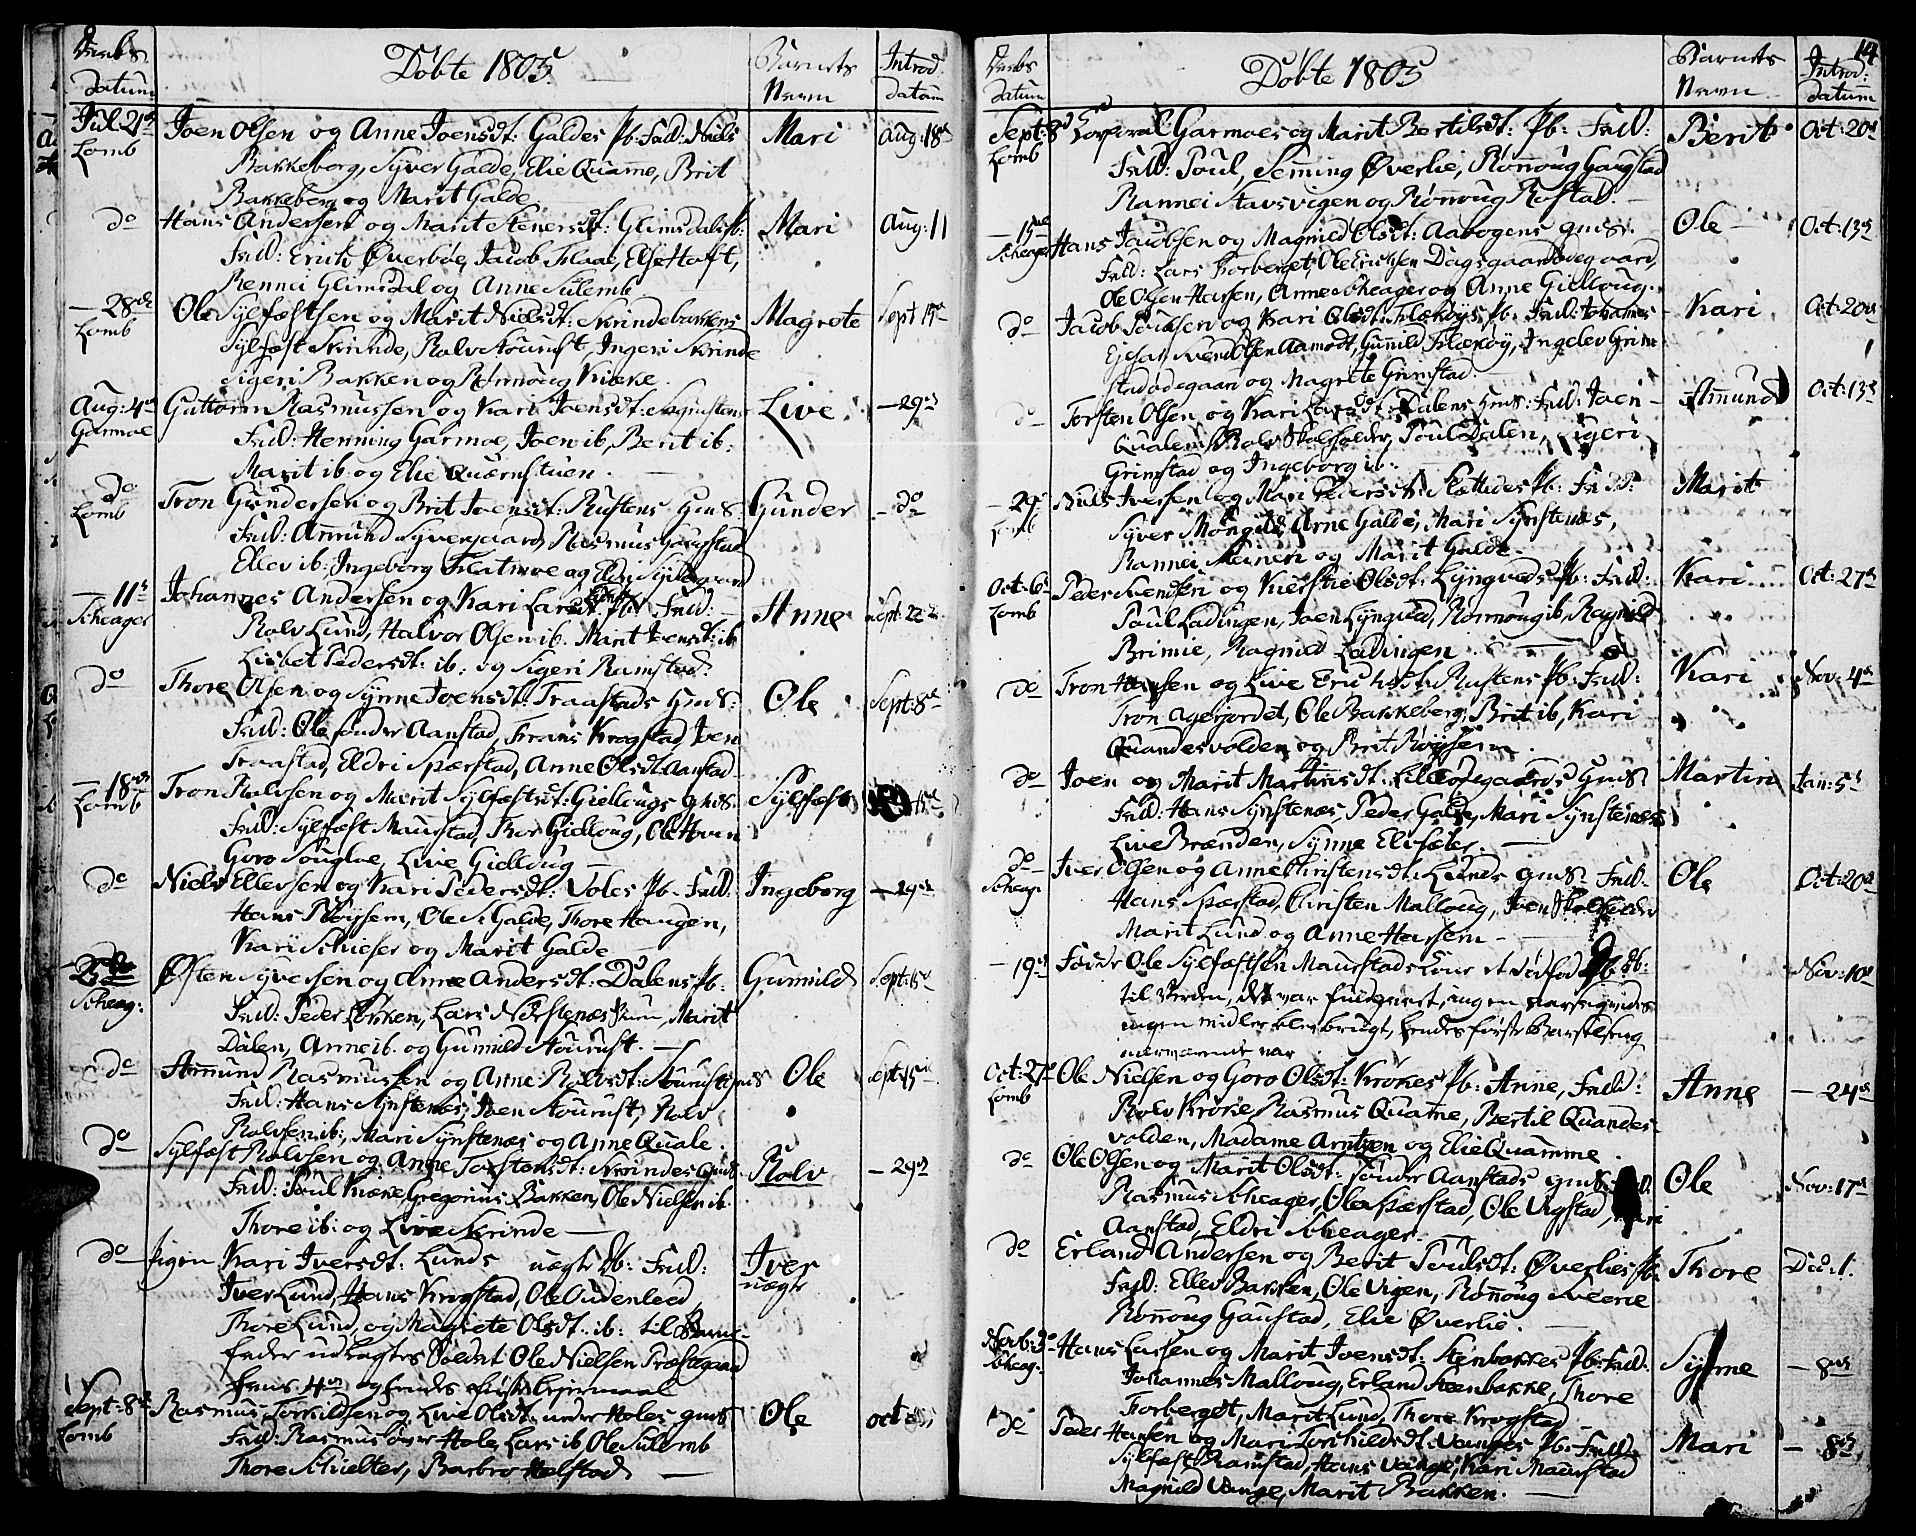 Daabs
Datum
Döbte 1805
Barnets
Navn
Introd:
datum
Jul. 21
Lomb
Joen Olsen og Anne Joensdt: Galdes Pb: Fad: Niels
Bakkeberg, Syver Galde, Elie Quamme, Brit
Bakkeberg og Marit Galde
Mari
Aug: 18
do
Hans Andersen og Marit Stenersdt: Glimsdals Pb:
Fad: Erich Øverbøe, Jacob Flaae, Else Hoft,
Rennei Glimsdal og Anne Sulemb
Mari
Aug: 11
— 28
Lomb
Ole Sylfæstsen og Marit Nielsdt: Skrindebakkens
Sylfæst Skrinde, Rolv Aourust, Ingeri Skrinde
Sigeri Bakken og Rønnoug Kvære.
Magrete
Sept
Aug: 4
Garmoe
Guttorm Rasmussen og Kari Joensdt:
Fad: Henning Garmoe, Joen ib, Berit ib:
Marit ib: og Elie Quærnstuen.
Live
— 29
do
Lomb
Tron Gundersen og Brit Joensdt: Rustens
Fad: Ammund Syvergaard, Rasmus Gaugstad
Ellev ib: Ingeborg Flatmoe og Eldri
Gunder
— do
— 11
Scheager
Johannes Andersen og Kari Larsdt: Pb: Fad:
Rolv Lund, Halvor Olsen ib. Marit Joensdt: ib
Lisbet Pedersdt: ib: og Sigeri Ramstad.
Anne
Sept: 22
do
Thore Olsen og Synne Joensdt: Traastads
Fad: Ole sönder Aanstad, Frans Krogstad, Joen
Traastad, Eldri Spærstad, Anne Olsdt: Aanstad
Ole
Sept: 8
— 18
Lomb
Tron Rolvsen og Marit Sylfæstsdt: Giellougs
Fad: Sylfæst Maurstad, Thor Gielloug, Ole
Goro Sougløe, Live Gielloug
Sylfæst
do
Niels Ellevsen og Kari Pedersdt: Voles Pb: Fad:
Hans Röysem, Ole S. Galde, Thore Haugen,
Kari og Marit Galde
Ingeborg
— 29
25
Scheag:
Østen Syversen og Anne Andersdt: Dalens Pb:
Fad: Peder Løkken, Lars, Marit
Dalen, Anne ib. og Gunnild Aourust. —
Gunnild
Sept: 15
do
Ammund Rasmussen og Anne Rolvsdt:
Fad: Hans Synstenes, Joen Aourust, Rolv
Rolvsen ib:, Mari Synstenæs og Anne Quale.
Ole
Sept: 15
do
Sylfæst Rolvsen og Anne Torstensdt: Skrindes
Fad: Poul Kvære, Gregorius Bakken, Ole Nielsen ib.
Thore ib: og Live Skrinde —
Rolv
— 29
do
Pigen Kari Iversdt: Lunds uægte Db: Fad:
Iver Lund, Hans Krogstad, Ole
Thore Lund, og Magrete Olsdt: ib: til Barne-
fader udlagtes Soldat Ole Nielsen Præstegaard
hans 4 og hendes første leiermaal
Iver
uægte
Sept: 8
Lomb
Rasmus Torkildsen og Live Olsdt: under Holes
Fad: Rasmus över Hole, Lars ib, Ole Sulemb
Thore, Barbro Holstad —
Ole
Oct
14
Daabs
datum
Döbte 1805
Barnets
Navn
Introd:
datum
Sept: 8
Lomb
Korporal Garmoes og Marit Bertilsdt: Pb: Fad:
Fad: Poul, Semming Øverlie, Rønnoug Gaugstad
Rannei Stavsvigen og Rønnoug Rostad. —
Berit
Oct: 20
— 15
Scheager
Hans Jacobsen og Magnild Olsdt: Aabogens
Fad: Lars Forberget, Ole Erichsen Dagsgaard ödegaard,
Ole Olsen Hersen, Anne Scheager og Anne Gielloug.
Ole
Oct: 13
do
Jacob Poulsen og Kari Olsdt: Flækøys Pb: Fad: Johannes
Svend Olsen Aamodt, Gunild Flækøy, Ingelev Grim
stadödegaard og Magrete Grimstad.
Kari
Oct: 20
do
Torsten Olsen og Kari dt: Dalens Fad: Joen
Qualen, Rolv, Poul Dalen, Sigeri
Grimstad og Ingeborg ib.
Amund
Oct: 13
— 29
Lomb
Iversen og Mari Pedersdt: Pb: Fad:
Syver, Arne Galde, Mari Synstenes,
Rannei og Marit Galde.
Marit
Oct: 6
Lomb
Peder Svendsen og Kierstie Olsdt: Lyngveds Pb: Fad:
Poul Ladingen, Joen Lyngved, Rønnoug ib, Ragnild
Brimie, Ragnild Ladingen
Kari
Oct: 27
do
Tron Hansen og Live Erichsdt: Rustens Pb: Fad:
Tron Agerjordet, Ole Bakkeberg, Brit ib, Kari
Quandesvolden og Brit Röysem.
Kari
Nov: 4
do
Joen og Marit Martinsdt: Lilleödegaards
Fad: Hans Synstenæs, Peder Galde, Mari Synstenæs
Live Brænden, Synne Elisæter. —
Martin
Jan: 5
do
Scheag:
Iver Olsen og Anne Christensdt: Lunds Fad.
Hans Spærstad, Christen Malloug, Joen
Marit Lund og Anne Hersem —
Ole
Oct: 20
— 19
Föder Ole Sylfæstsen Maurstads Kone et dödfød Db:
til Verden, det var fuldbaaret, ingen
ingen midler blev brugt, hendes første Barselseng
nærværende var
Nov: 10
Oct: 27
Lomb
Ole Nielsen og Goro Olsdt: Krokes Pb: Anne, Fad:
Rolv Kroke, Rasmus Quamme, Bertil Quandes-
volden, Madame Arntzen og Elie Quamme.
Anne
— 24
do
Ole Olsen og Marit Olsdt: sönder Aanstads
Rasmus Scheager, Ole Spærstad, Ole Vigstad,
Aanstad, Eldri Scheager. —
Ole
Nov: 17
do
Erland Andersen og Berit Poulsdt: Øverlies Pb:
Fad: Ellev Bakken, Ole Vigen, Rønnoug
Rønnoug Gaustad, Elie Øverlie.
Thore
Dec: 1.
Novb: 3
Scheag:
Hans Larsen og Marit Joensdt: Stenbakkes Pb: Fad:
Johannes Malloug, Erland Steenbakke, Thore
Forberget, Marit Lund, Thore Krogstad —
Synne
— 8
do
Peder Hansen og Mari Torchildsdt: Vanges Pb: Fad:
Sylfæst Ramstad, Hans Vange, Kari Maurstad
Magnild Vange, Marit Bakken. —
Mari
— 8